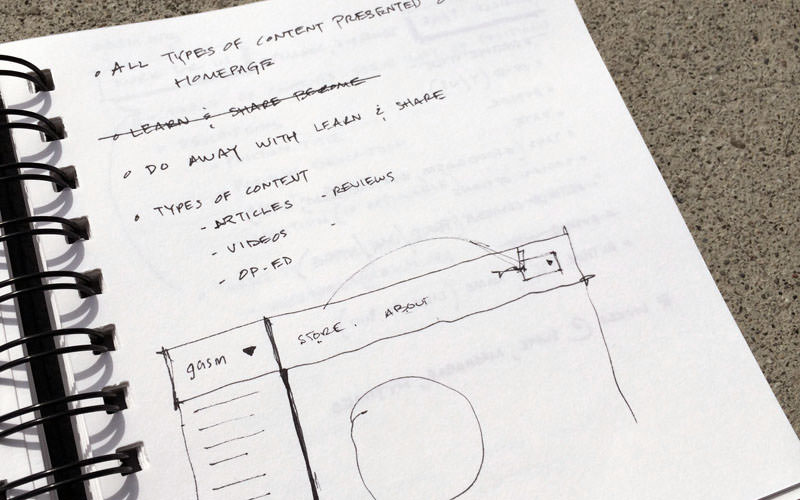 • ALL TYPES OF CONTENT PRESENTED
HOMEPAGE
• LEARN & SHARE BECOME
• DO AWAY WITH LEARN & SHARE
• TYPES OF CONTENT
- ARTICLES - REVIEWS
- VIDEOS -
- OP-ED
gasm STORE. ABOUT